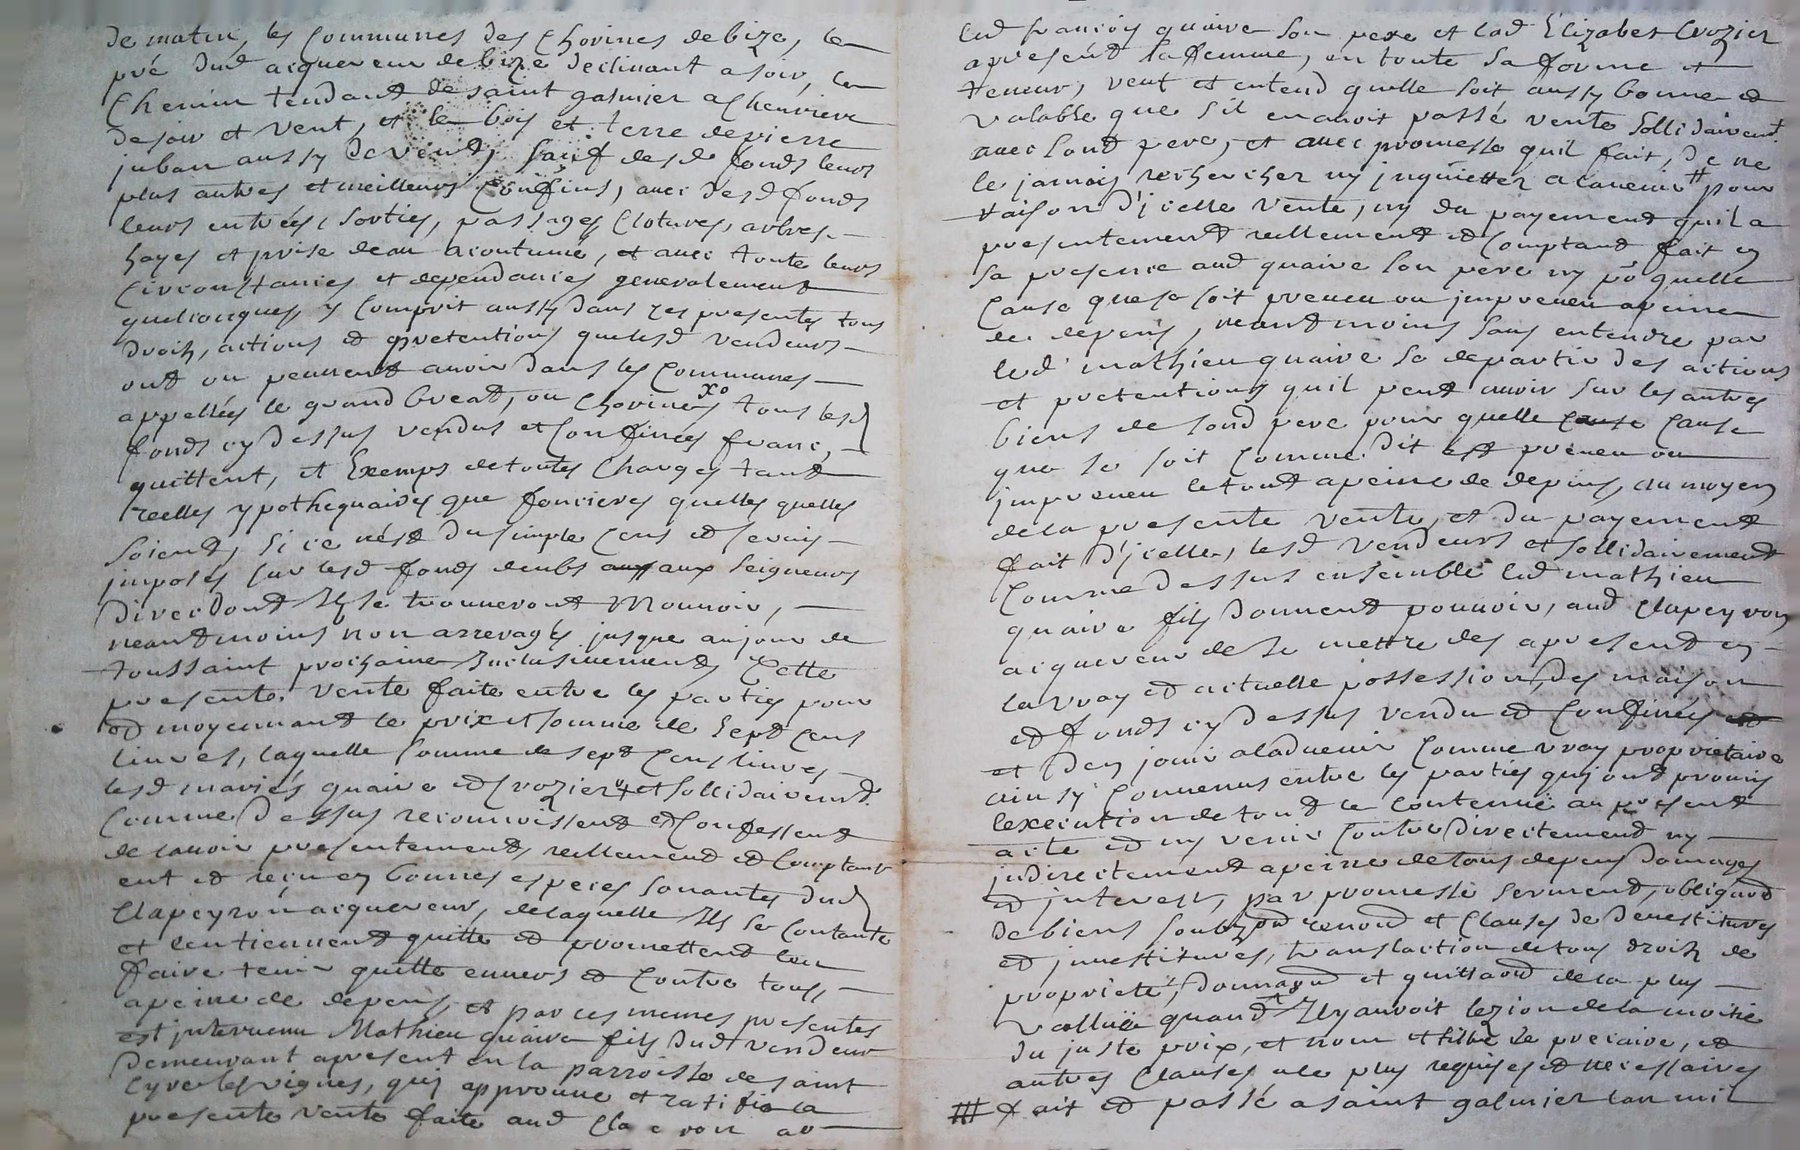 de matin, les Communes des Chovines de bize, le
pré dud acquereur de bize declinant a soir, le
Chemin tendant de saint galmier a Chevriere
de soir et vent, et le bois et terre de pierre
juban aussy de vent, sauf desd fonds leurs
plus autres et meilleurs Confins, avec desd fonds
leurs entrées, sorties, passages, Clotures, arbres
hayes et prise deau acoutumé, et avec toute leurs
Circonstances et dependances generalement
quelconques, y Comprit aussy dans ces presentes tous
droits, actions et pretentions que lesd vendeurs
ont ou peuvent avoir dans les Communes
appellées le grand breat, ou Chovines xo tous lesd
fonds cy dessus vendus et Confinées franc,
quittent, et Exemps de toutes Charges tant
reelles ypothequaires que foncieres quelles quelles
soient, si ce nést du simple Cens et servis
imposés sur lesd fonds deubs aux Seigneurs
Direcdont Ils se trouveront Mouvoir,
neantmoins non arreragés jusque au jour de
toussaint prochaine Inclusivement, Cette
presente vente faite entre les parties pour
et moyennant le prix et somme de Sept Cens
livres, laquelle somme de sept Cens livres
lesd mariés quaire et Crozier et sollidairemt
Comme Dessus reconnoissent et Confessent
de lavoir presentement, reellement et Comptant
eut et reçu en bonnes especes sonantes dud
Clapeyron acquereur, de laquelle Ils se Contante
et lentiennent quitte et promettent len
faire tenir quitte envers et Contre tous,
apeine de depens, et par ces memes presentes
est intervenu Mathieu quaire fils dud vendeur
Demeurant apresent en la parroisse de saint
Cyre les vignes, quj approuve et ratifie la
presente vente faite aud Cla e ron ar
led francois quaire son pere et lad Elizabet Crozier
apresent sa femme, en toute sa forme et
teneur, veut et entend quelle soit aussy bonne et
valable que sil en avoit passé vente sollidairemt
avec sond pere, et avec promesse quil fait, de ne
le jamois rechercher ny jnquietter a lavenir # pour
raison d'jcelle vente, ny du payement quil a
presentement reellement et Comptant fait en
sa presence aud quaire son pere ny po quelle
Cause que se soit preveu ou jmpreveu apeine
de depens, neantmoins sans entendre par
led mathieu quaire se departir des actions
et pretentions quil peut avoir sur les autres
biens de sond pere pour quelle Cause Cause
que se soit Comme dit est preveu ou
jmpreveu le tout apeine de depens, au moyen
de la presente vente, et du payement
fait d'jcelle, lesd vendeurs et sollidairement
Comme dessus ensemble led mathieu
quaire fils donnent pouvoir, aud Clapeyron
acquereur de se mettre des apresent en
la vray et actuelle possession, des maison
et fonds cy dessus vendu et Confinées et
et den jouir aladvenir Comme vray proprietaire
ainsy Convenus entre les parties quj ont promis
lexecution de tout le Contenu au present
acte et ny venir Contre directement ny
jndirectement apeine de tous depens domages
et jnterest, par promesse serment, obligaon
de biens soubzon renon et Clauses de devestitures
et jnvestitures, translaction de tous droits de
proprieté, donnaon et quittaon de la plus
vallüe quand Il y auroit lezion de la moitié
du juste prix, et nom et tiltre de precaire, et
autres Clauses ale plus requises et necessaires
# fait et passé a saint galmier lan mil